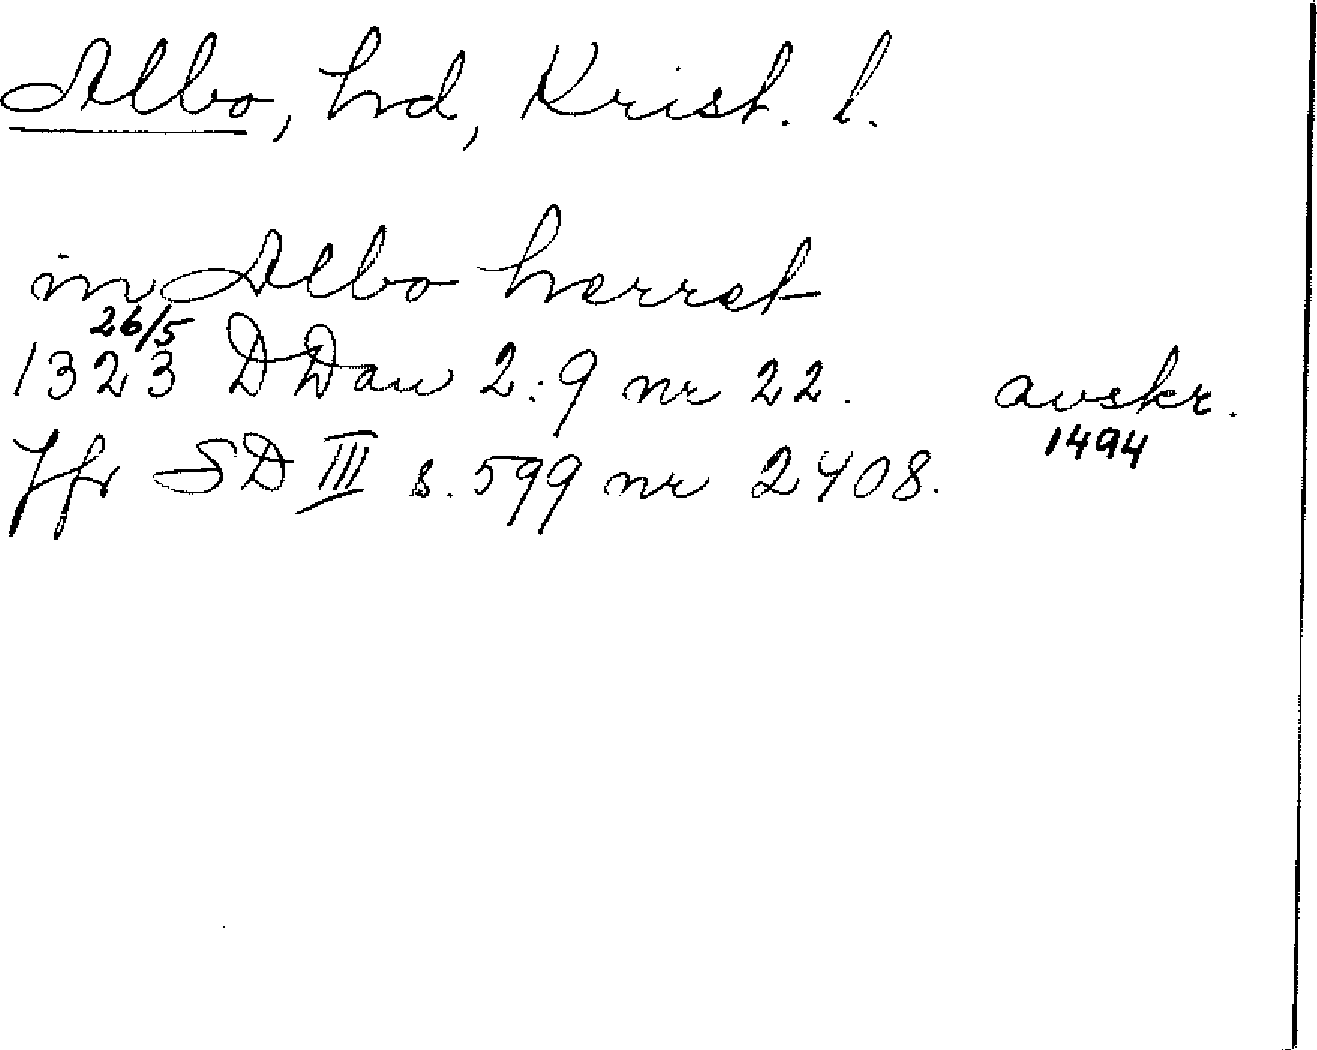 Albo, hd, Krist. l.
in Albo herret
26/5
1323 DDan 2:9 nr 22. avskr.
1494
Jfr SD III s. 599 nr 2408.